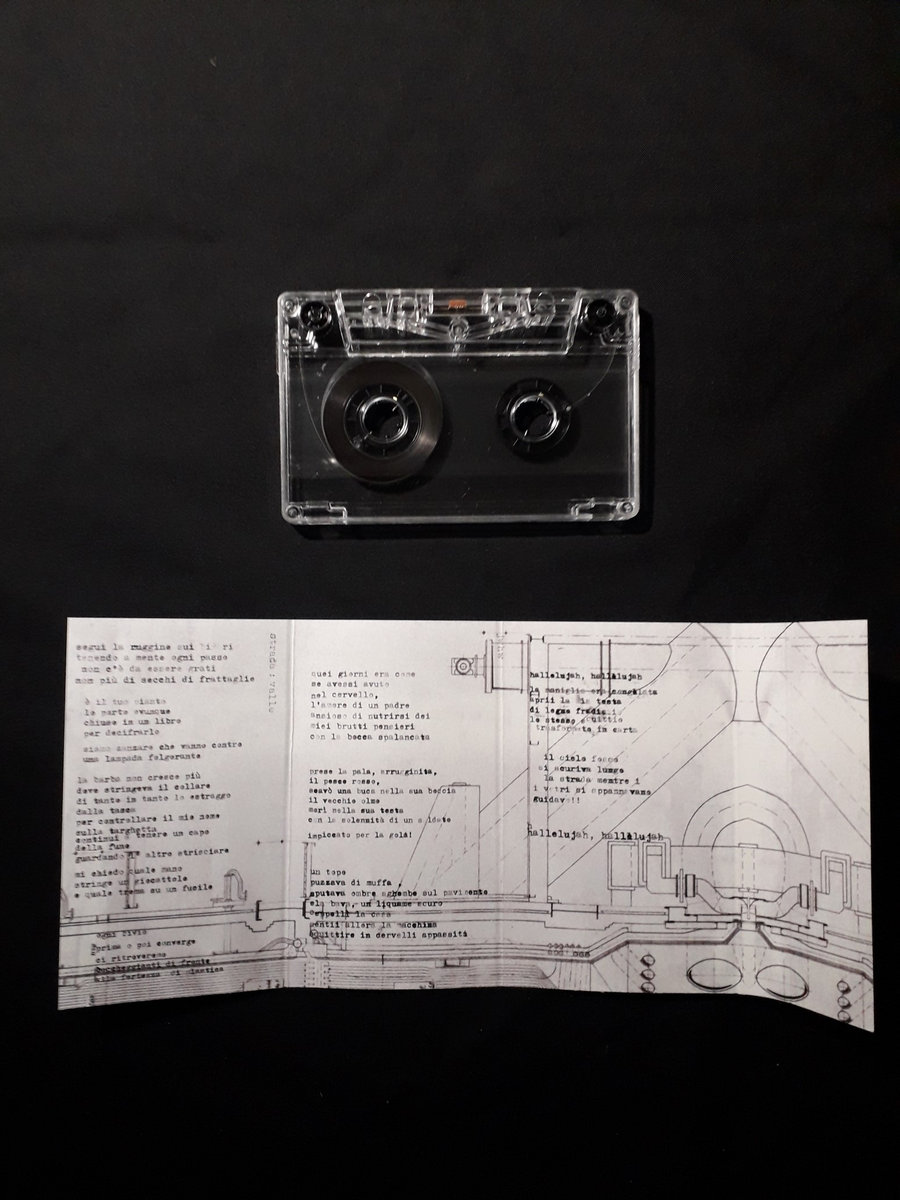 segui la ruggine sui ri
tenendo a mente ogni passo
non c'è da essere grati
non più di secchi di frattaglie
è il tuo pianto
lo porto ovunque
chiuso in un libro
per decifrarlo
siamo zanzare che vanno contro
una lampada folgorante
la barba non cresce più
dove stringeva il collare
di tanto in tanto lo estraggo
dalla tasca
per controllare il mio nome
sulla targhetta
continui a tenere un capo
della fune
guardando altro strisciare
mi chiedo quale mano
stringe un giocattolo
e quale trema su un fucile
ogni civio
prima o poi converge
ci ritroveremo
boccheggianti di fronte
alla fortezza di plastica
strado : valle
quei giorni era come
se avessi avuto
nel cervello,
l'amore di un padre
ansioso di nutrirsi dei
miei brutti pensieri
con la bocca spalancata
prese la pala, arrugginita,
il pesce rosso,
scavò una buca nella sua boccia
il vecchio olmo
morì nella sua testa
con la solennità di un soldato
impiccato per la gola!
un topo
puzzava di muffa
sputava ombre sghembe sul pavimento
bava, un liquame scuro
la casa
sentii allora la macchina
squittire in cervelli appassiti
hallelujah, hallelujah
la maniglia era congelata
aprii la testa
di legno fradicio
lo stesso squittio
trasformato in carta
il cielo fosco
si scuriva lungo
la strada mentre i
i vetri si appannavano
guidavo!!
hallelujah, hallelujah